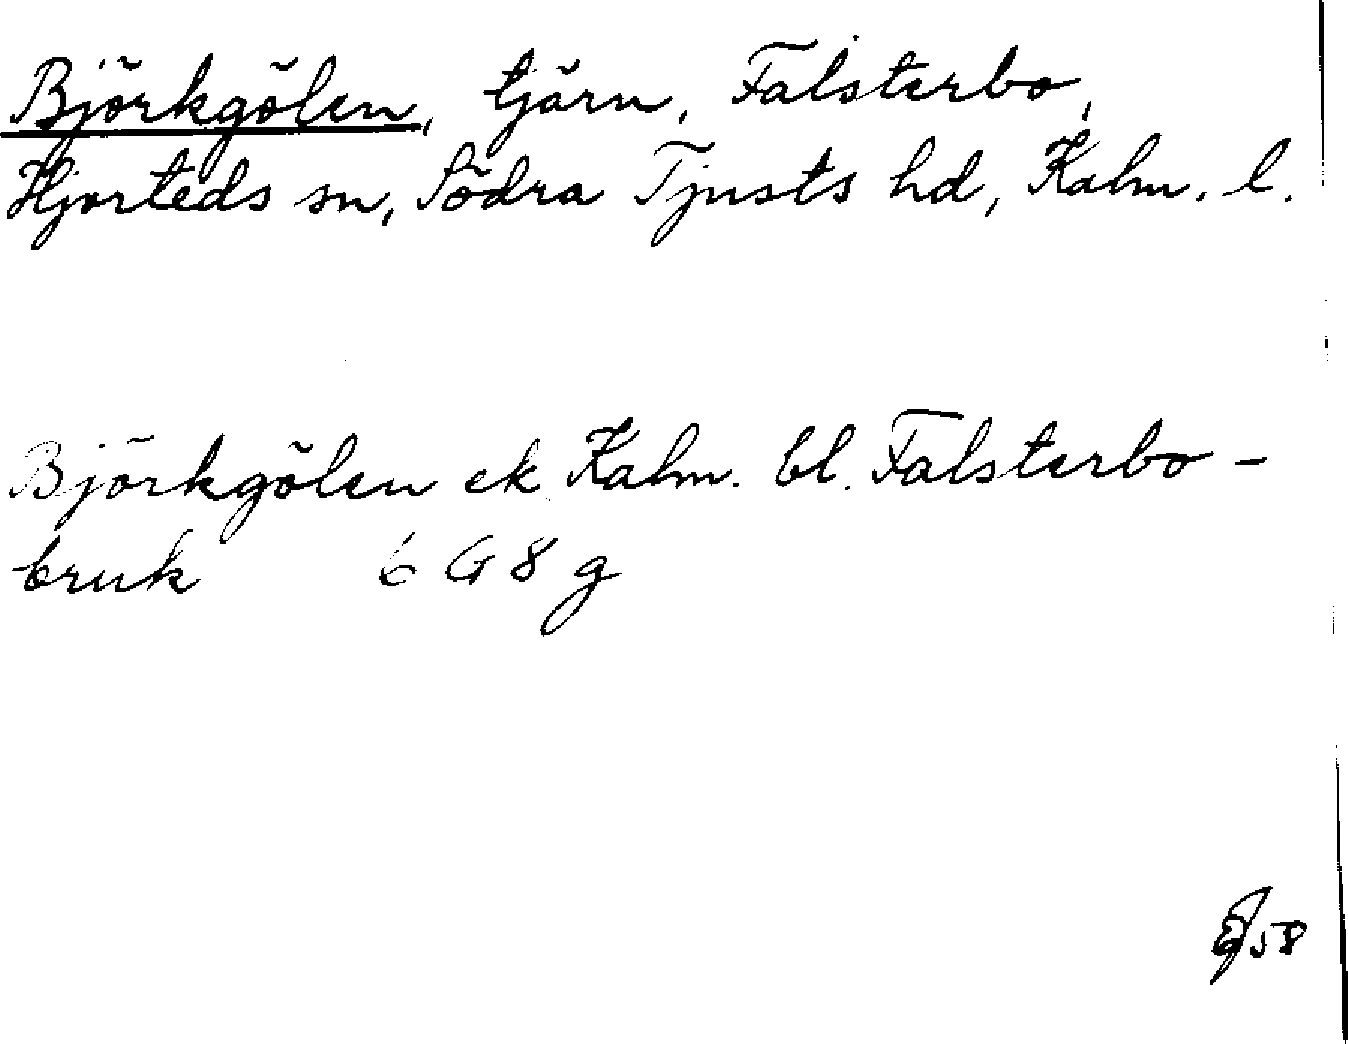 Björkgölen, tjärn, Falsterbo,
Hjorteds sn, Södra Tjusts hd, Kalm. l.
Björkgölen ek Kalm. bl. Falsterbo-
bruk 6 G 8 g
58